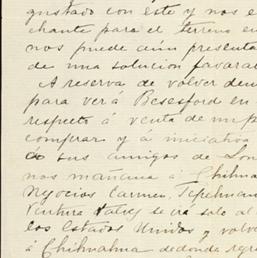 gustado con este y nos e
chante para el terreno en
nos puede aún presenta
de una solucion favorat
A reserva de volver den
para verá Beresford en
respecto á venta de mp
comprar y á iniciativa
de sus amigos de Lon
nos mañana á Chihua
Negocios Carmen, Tepehuan
Ventura se irá solo al
los Estados Unidos y volv
á Chihuahua de donde regre